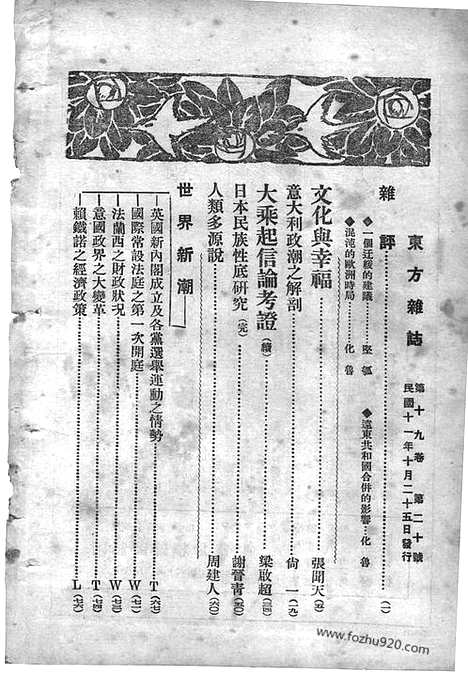 東方雜誌 第十九卷 第二十號
民國十一年十月二十五日發行
雜評……(一)
◆一個迂緩的建議……堅瓠 ◆遠東共和國合併的影響…化魯
◆混沌的歐洲時局……化魯
文化與幸福……張聞天(五)
意大利政潮之解剖……尙一(一九)
大乘起信論考證(續)……梁啟超
日本民族性底研究(完)……謝晉青
人類多源說……周建人(六〇)
世界新潮
英國新內閣成立及各黨選舉運動之情勢……T(六七)
國際常設法庭之第一次開庭……W
法蘭西之財政狀況……W(七三)
意國政界之大變革……T(七四)
賴鐵諾之經濟政策……L(七六)
www.fozhu920.com